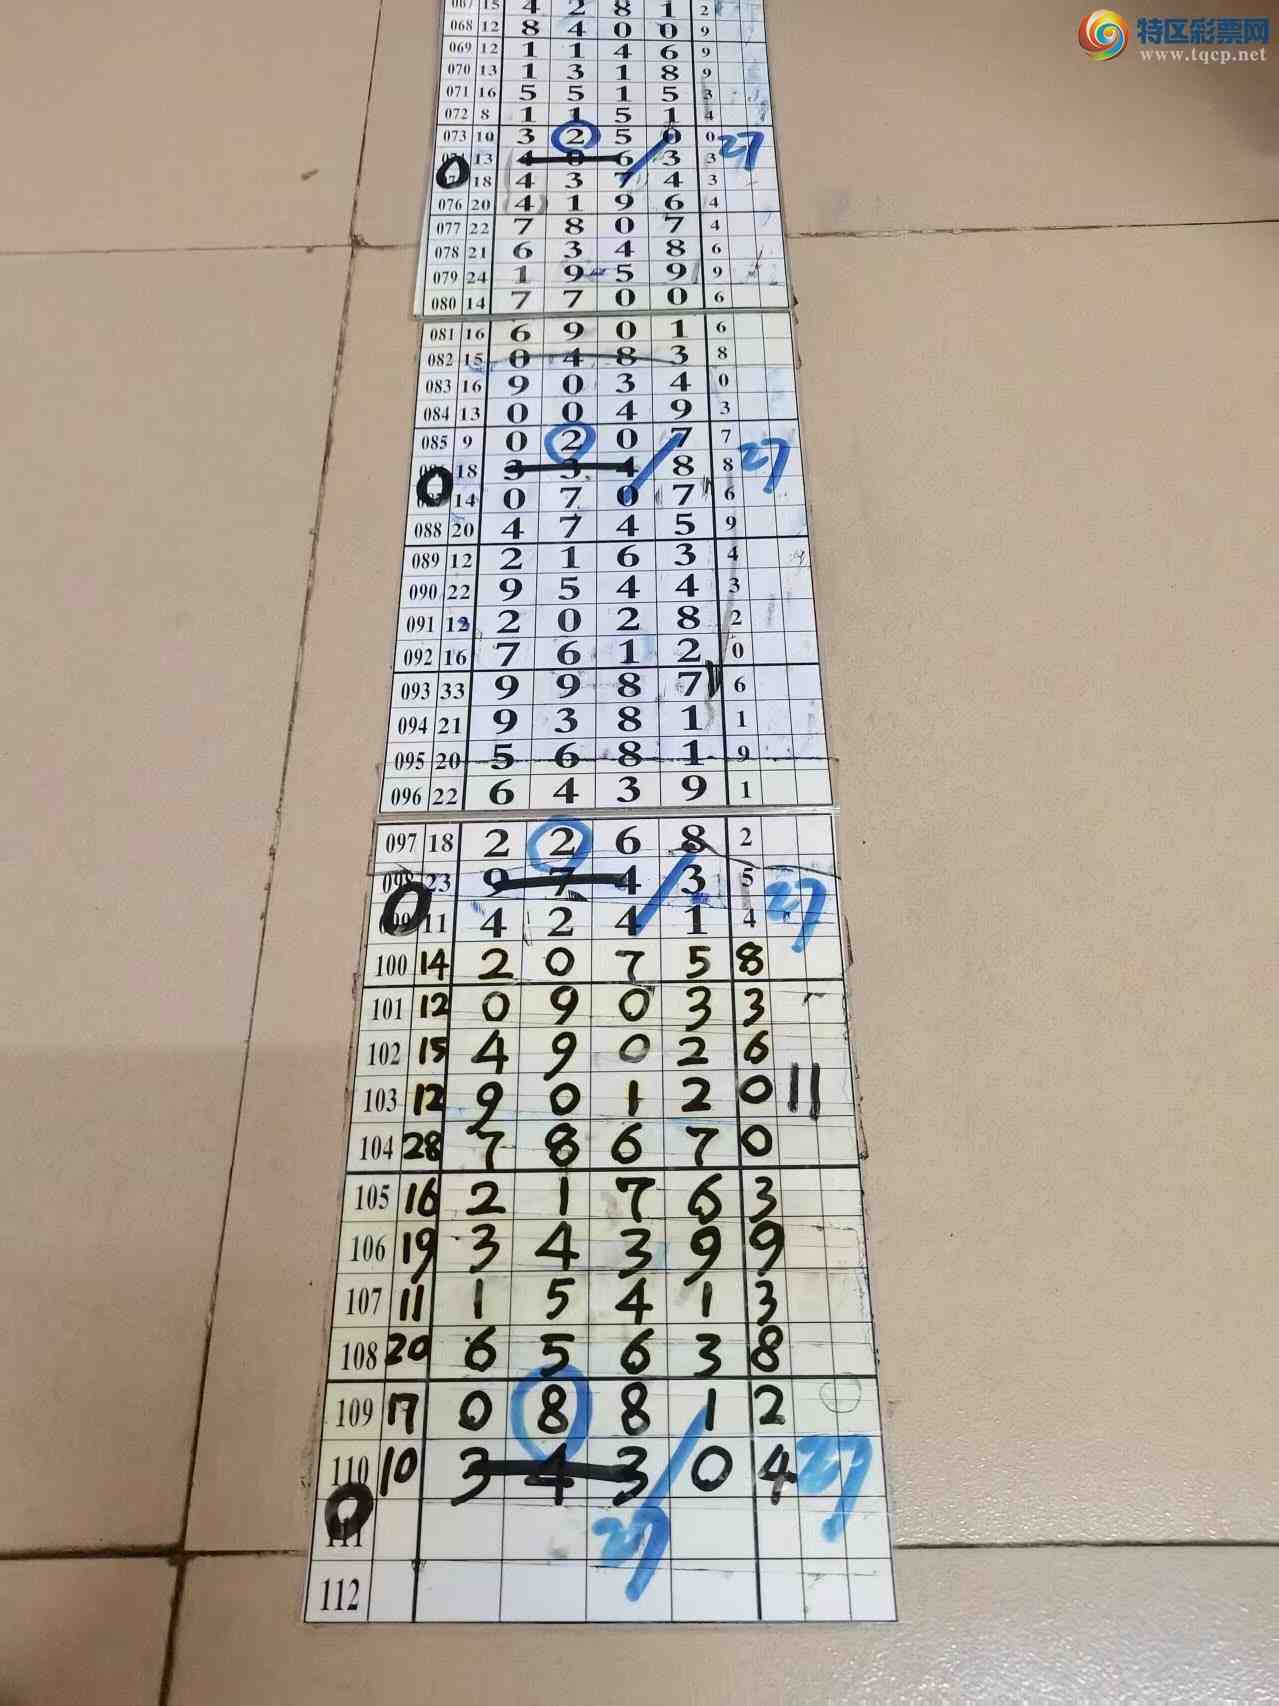 特区彩票网
www.tqcp.net
067 15 4 2 8 1 2
068 12 8 4 0 0 9
069 12 1 1 4 6 9
070 13 1 3 1 8 9
071 16 5 5 1 5 3
072 8 1 1 5 1 4
073 10 3 2 5 0 0 27
13 4 0 6 3 3
0 18 4 3 7 4 3
076 20 4 1 9 6 4
077 22 7 8 0 7 4
078 21 6 3 4 8 6
079 24 1 9 5 9 9
080 14 7 7 0 0 6
081 16 6 9 0 1 6
082 15 0 4 8 3 8
083 16 9 0 3 4 0
084 13 0 0 4 9 3
085 9 0 2 0 7 7 27
18 3 3 4 8 8
0 14 0 7 0 7 6
088 20 4 7 4 5 9
089 12 2 1 6 3 4
090 22 9 5 4 4 3
091 12 2 0 2 8 2
092 16 7 6 1 2 0
093 33 9 9 8 7 6
094 21 9 3 8 1 1
095 20 5 6 8 1 9
096 22 6 4 3 9 1
097 18 2 2 6 8 2
098 23 9 7 4 3 5 27
0 099 11 4 2 4 1 4
100 14 2 0 7 5 8
101 12 0 9 0 3 3
102 15 4 9 0 2 6
103 12 9 0 1 2 0 11
104 28 7 8 6 7 0
105 16 2 1 7 6 3
106 19 3 4 3 9 9
107 11 1 5 4 1 3
108 20 6 5 6 3 8
109 17 0 8 8 1 2
110 10 3 4 3 0 4 27
0 111 27
112